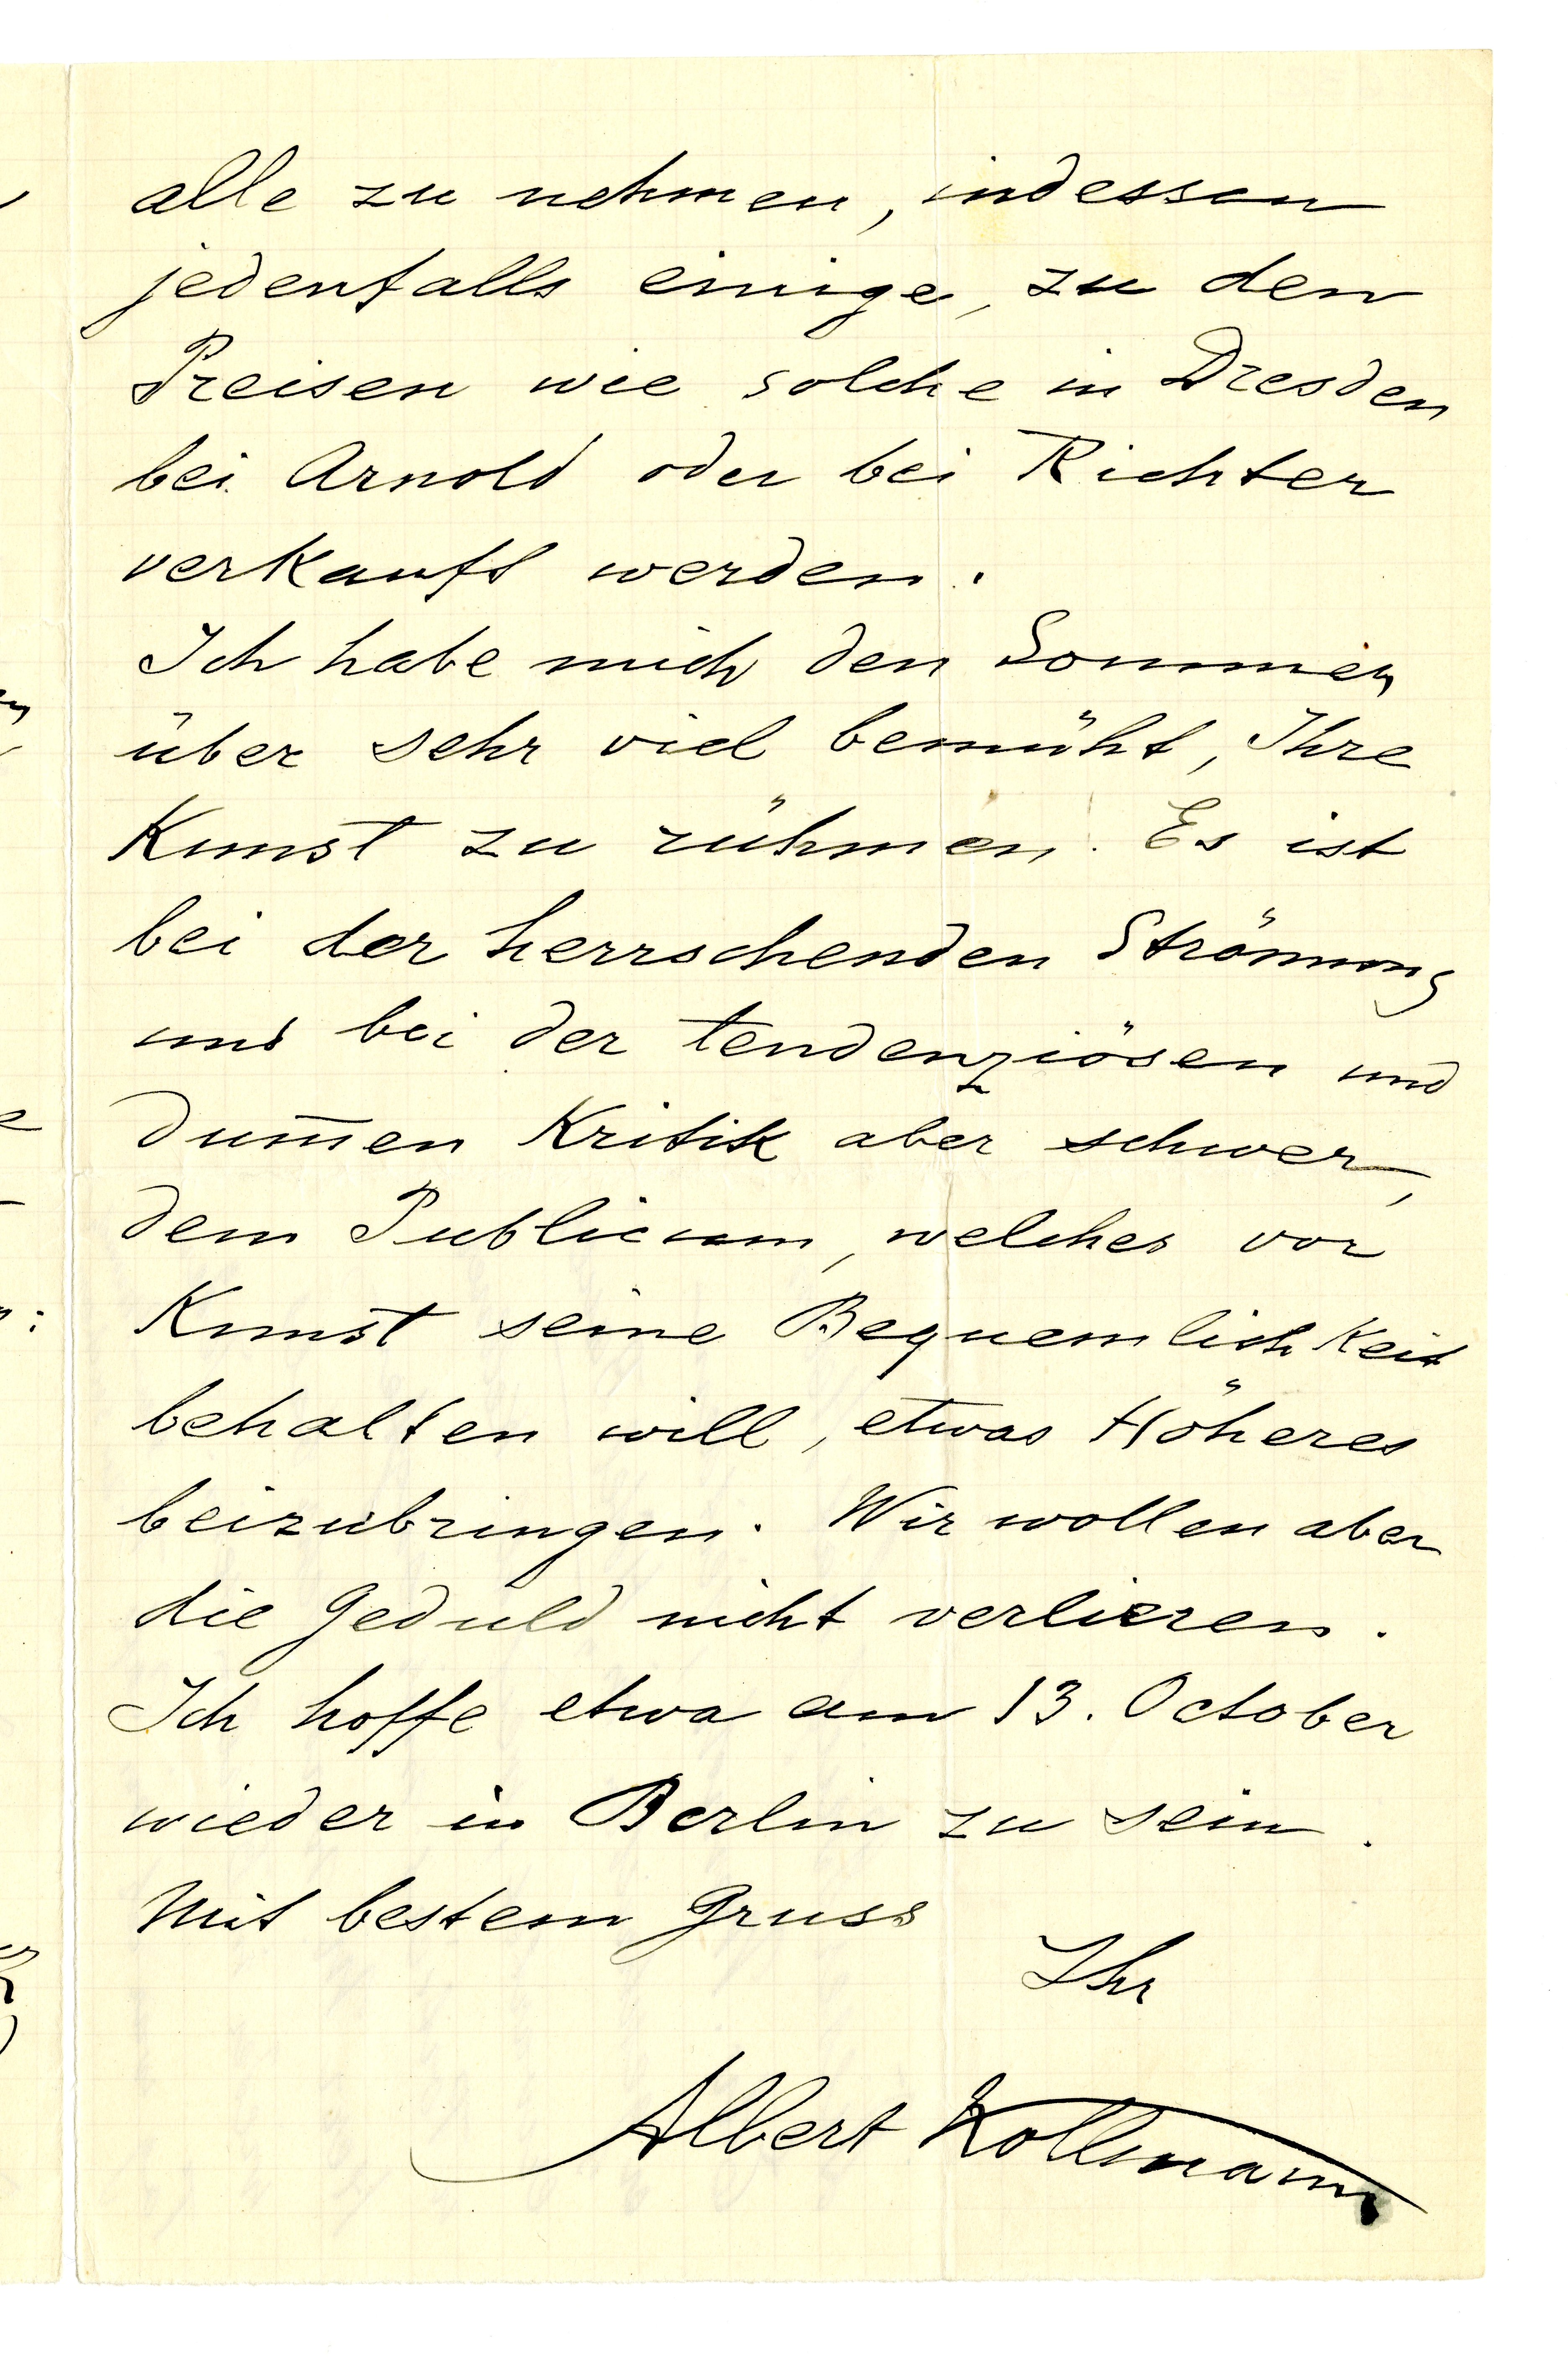 alle zu nehmen, indessen
jedenfalls einige, zu den
Preisen wie solche in Dresden
bei Arnold oder bei Richter
verkauft werden.
Ich habe mich den Sommer
über sehr viel bemüht, Ihre
Kunst zu rühmen. Es ist
bei der herrschenden Strömung
und bei der tendenziösen und
dum̅en Kritik aber schwer,
dem Publicum, welches vor
Kunst seine Bequemlichkeit
behalten will, etwas Höheres
beizubringen. Wir wollen aber
die Geduld nicht verlieren.
Ich hoffe etwa am 13. October
wieder in Berlin zu sein.
Mit bestem Gruss
Ihr
Albert Kollmann